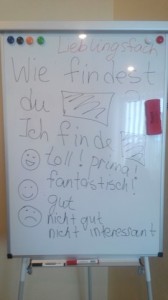 Lieblingsfach
Wie findest
du ?
Ich finde
toll! prima!
fantastisch!
gut
nicht gut
nicht interessant